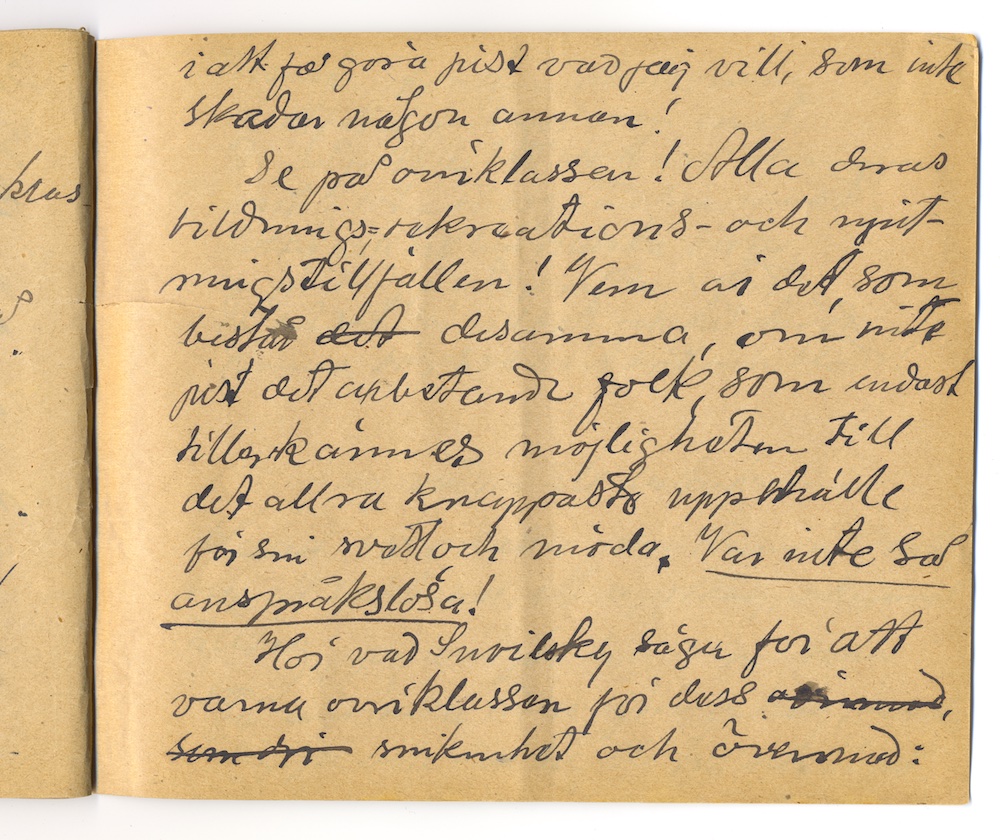 kras-
i att få göra just vad jag vill, som inte
skadar någon annan!
Se på överklassen! Alla deras
bildnings-, rekreations- och njut-
ningstillfällen! Vem är det, som
består det desamma, om inte
just det arbetande folk, som endast
tillerkännes möjligheten till
det allra knappaste uppehälle
för sin svett och möda. Var inte så
anspråkslösa!
Hör vad Snoilsky säger för att
varna överklassen för dess övermod,
snikenhet och övermod: